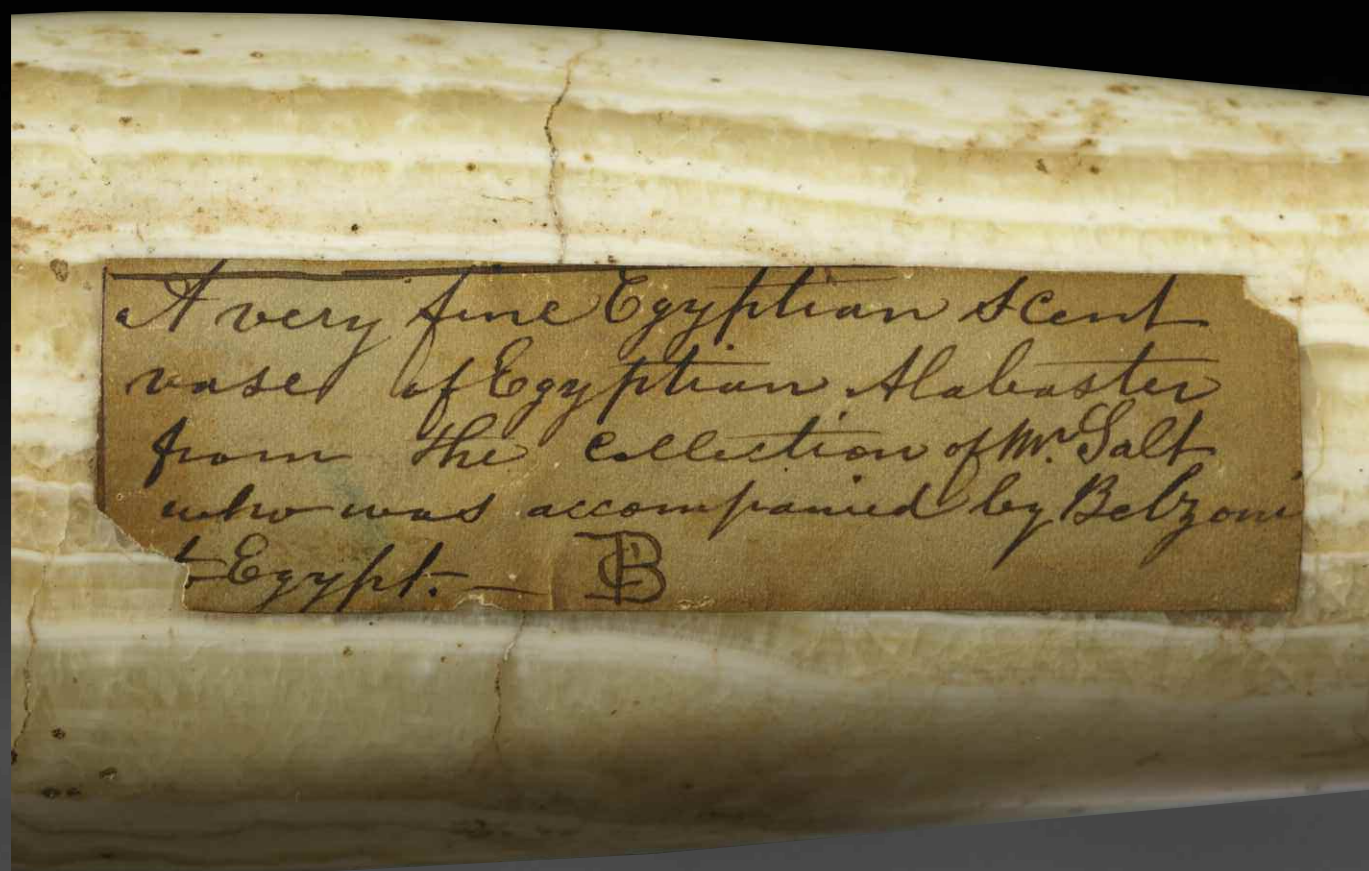 A very fine Egyptian Scent
vase of Egyptian Alabaster
from the collection of Mr. Salt
who was accompanied by Belzoni
t Egypt. —